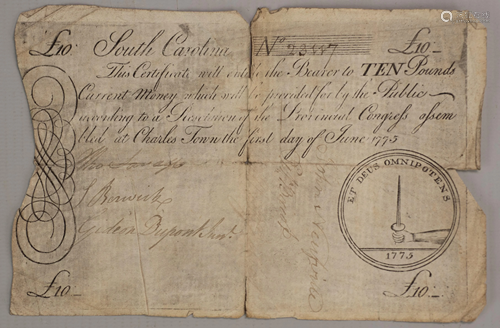 £10. South Carolina Nº £10
This Certificate will entitle the Bearer to TEN Pounds
Current Money which will be provided for by the Public
according to a Resolution of the Provincial Congress assem
bled at Charles Town the first day of June 1775
J. Berwick
Gideon Dupont Junr.
ET DEUS OMNIPOTENS
1775
£10 £10